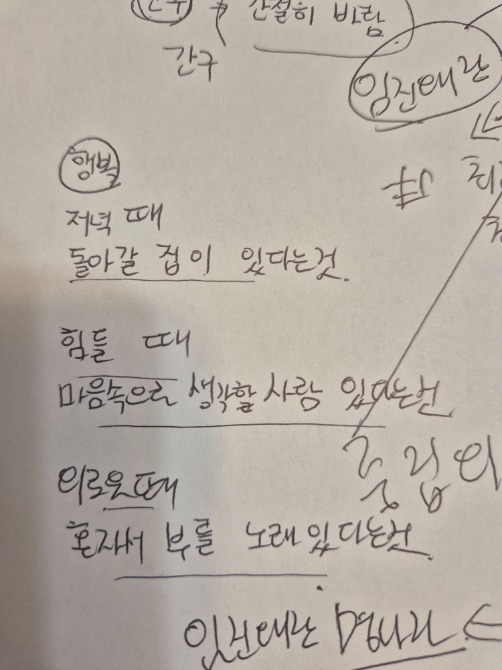 간절히 바람
간구
임진왜란
행복
저녁 때
돌아갈 집이 있다는것.
힘들 때
마음속으로 생각할 사람 있다는건
외로운때
혼자서 부를 노래있다는것.
중립외
임진왜란